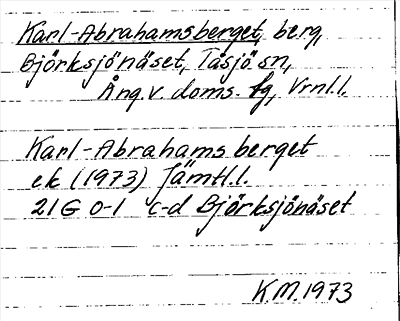 Karl-Abrahamsberget, berg,
Björksjönäset, Tåsjö sn,
Ång.v. doms. fg, Vrnl.l.
Karl-Abrahamsberget
ek (1973) Jämtl.l.
21G 0-1 c-d Björksjönäset
K.M.1973